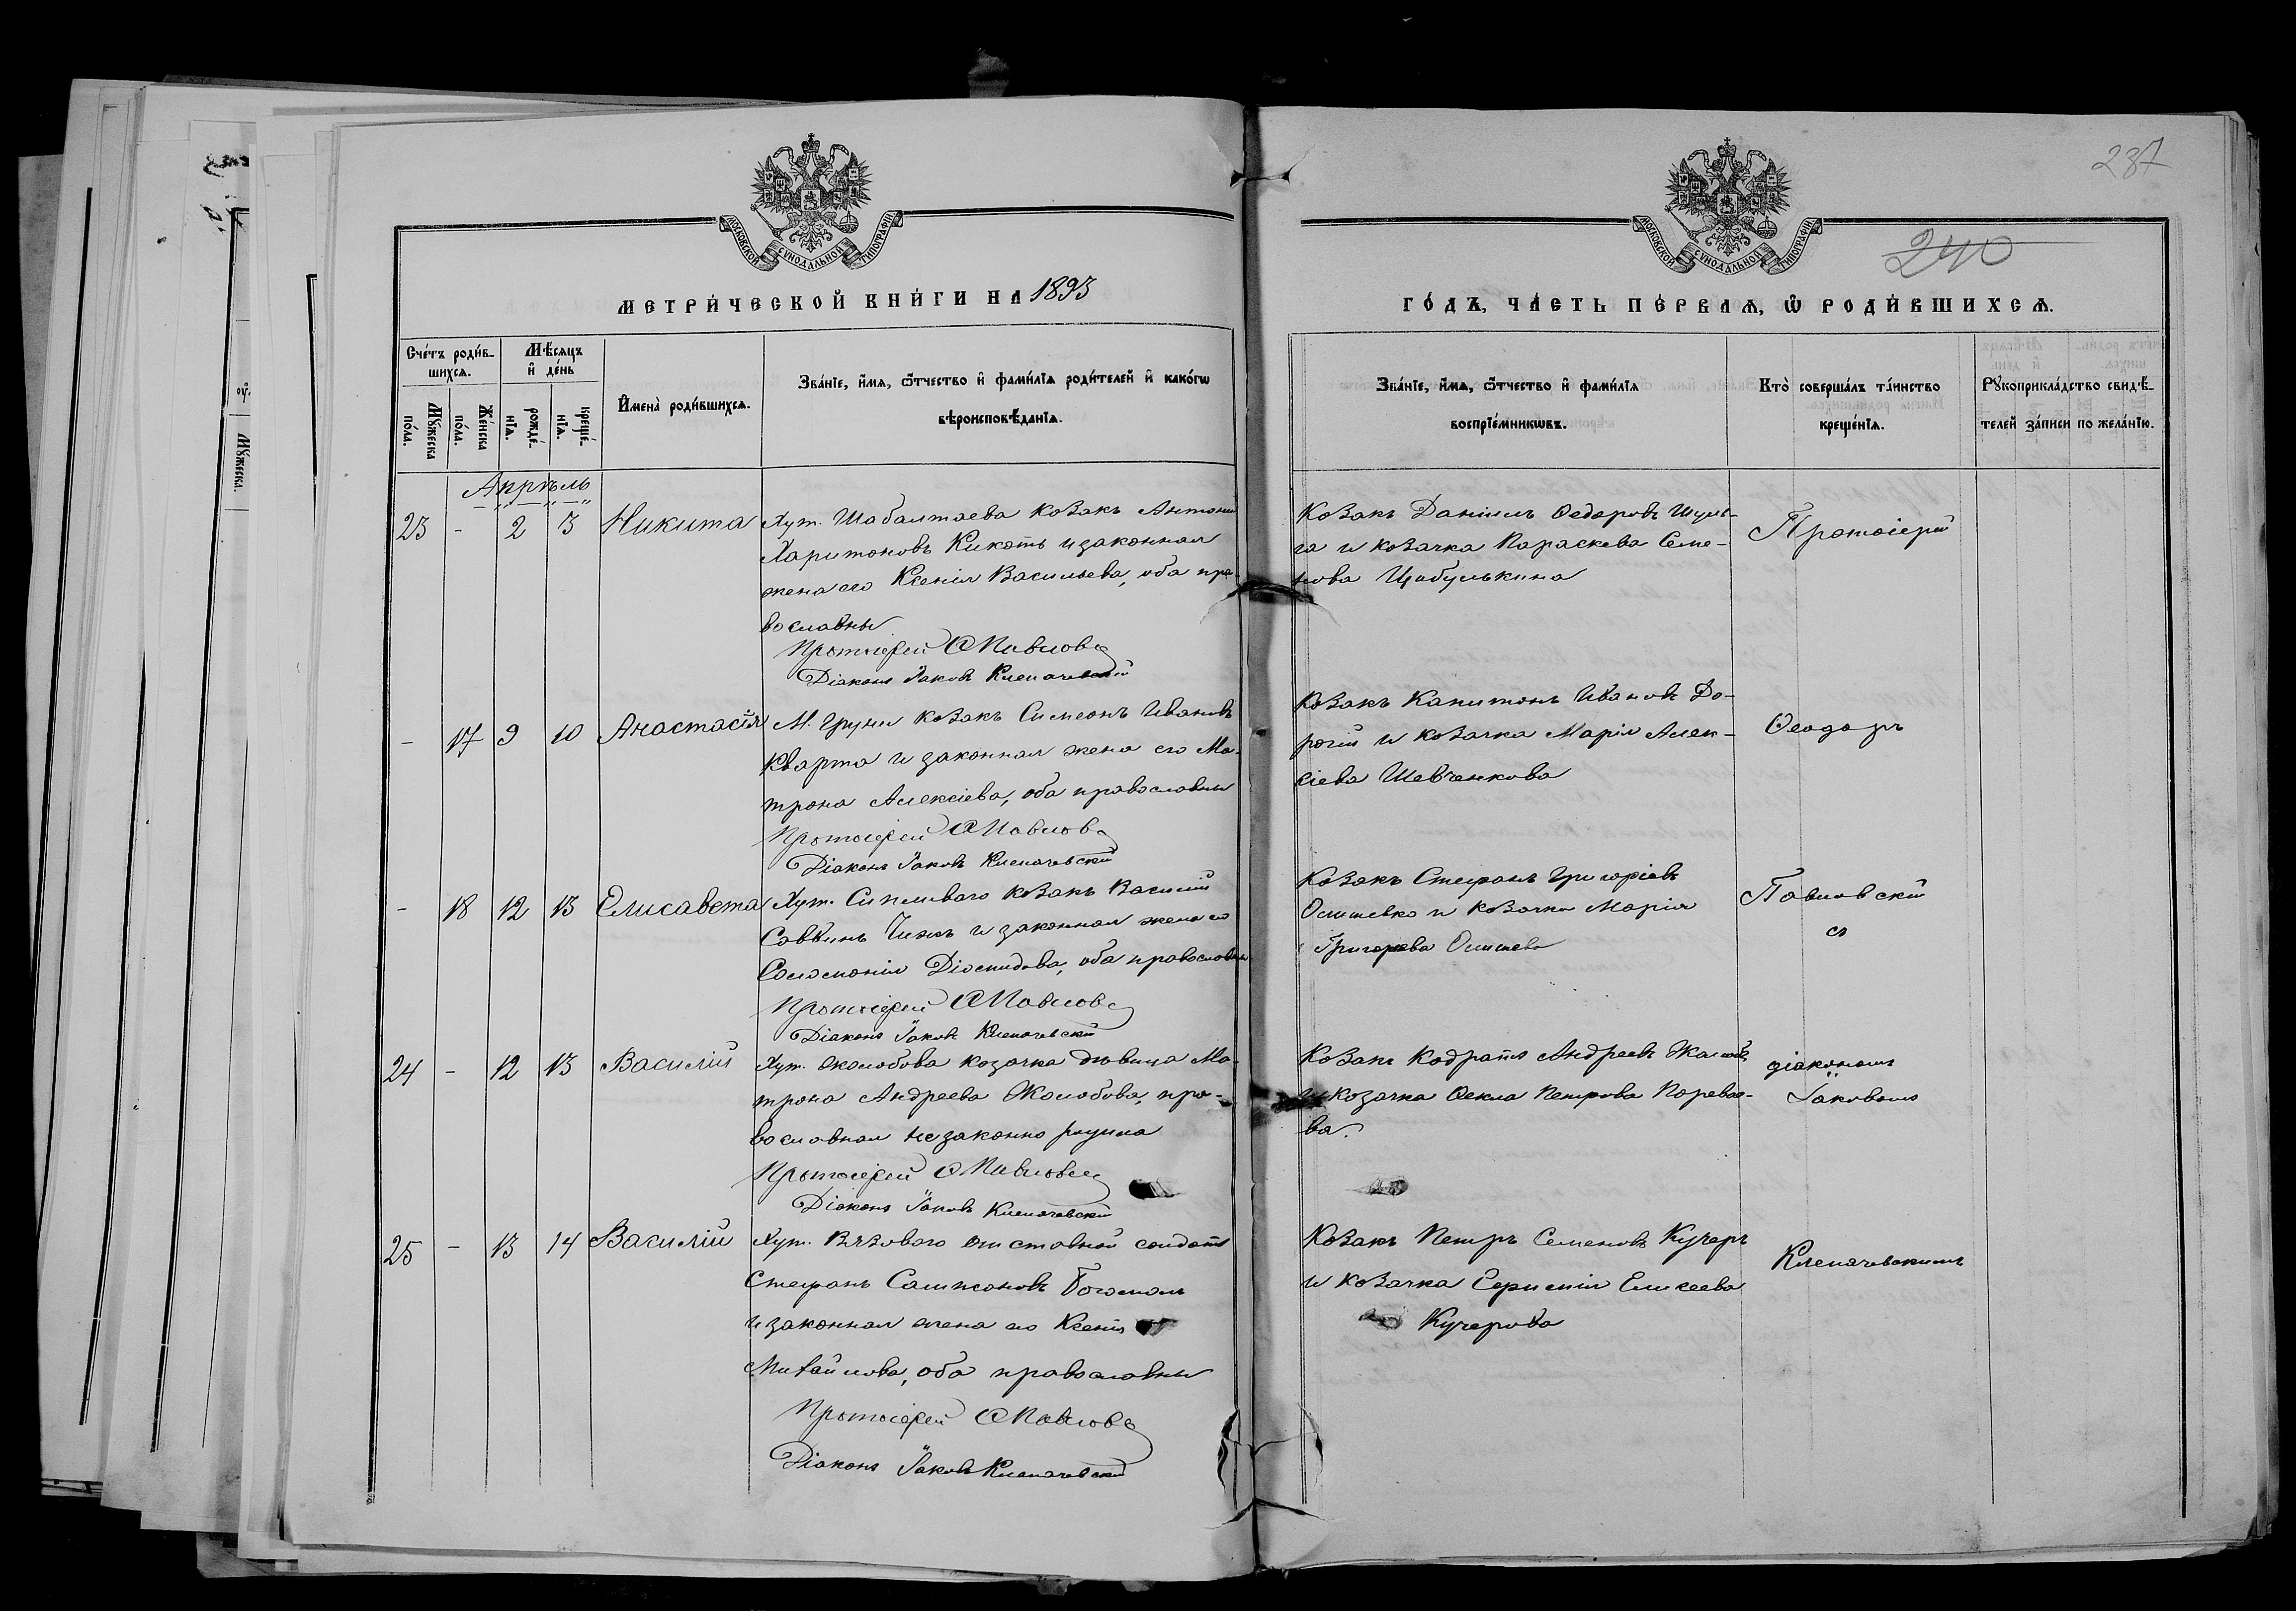 237
240
МОСКОВСКОЙ СѴНОДАЛЬНОЙ ТИПОГРАФІИ
МЕТРИ́ЧЕСКОЙ КНИ́ГИ НА 1893
Сче́тъ роди́в-
шихся.
Мѣ́сяцъ
и҆ де́нь
Мꙋ́жеска
по́ла.
Же́нска
по́ла.
рожде́-
нїѧ.
креще́-
нїѧ.
И҆мена̀ роди́вшихсѧ.
Зва́нїе, и҆́мѧ, ѻ҆́тчество и҆ фами́лїѧ роди́телей и҆ како́гѡ
вѣроисповѣ́данїѧ.
Апрѣль
23 - 2 3 Никита
Хут. Шабалтаева козакъ Антоній
Харитоновъ Кикоть и законная
жена его Ксенія Васильева, оба пра-
вославны
Протоіерей Ѳ Павловс
Діаконъ Іаковъ Клепачевскій
- 17 9 10 Анастасія
М. Груни козакъ Симеонъ Ивановъ
Кварта и законная жена его Ма-
трона Алексіева, оба православны
Протоіерей Ѳ Павловс
Діаконъ Іаковъ Клепачевскій
- 18 12 13 Елисавета
Хут. Сипливаго козакъ Василій
Саввинъ Чижъ и законная жена его
Соломонія Діомидова, оба православны
Протоіерей Ѳ Павловс
Діаконъ Іаковъ Клепачевскій
24 - 12 13 Василій
Хут. Жолобова козачка дѣвица Ма-
трона Андреева Жолобова, пра-
вославная незаконно
Протоіерей Ѳ Павловс
Діаконъ Іаковъ Клепачевскій
25 - 13 14 Василій
Хут. Вязоваго отставной солдатъ
Стефанъ Сампсоновъ Богомолъ
и законная жена его Ксенія
Михайлова, оба православны
Протоіерей Ѳ Павловс
Діаконъ Іаковъ Клепачевскій
МОСКОВСКОЙ СѴНОДАЛЬНОЙ ТИПОГРАФІИ
ГО́ДЪ, ЧА́СТЬ ПЕ́РВАЯ, Ѽ РОДИ́ВШИХСЯ.
Зва́нїе, и҆́мѧ, ѻ҆́тчество и҆ фами́лїѧ
воспрїе́мникѡвъ.
Кто̀ соверша́лъ та́инство
креще́нїѧ.
Рꙋкоприкла́дство свидѣ́-
телей за́писи по жела́нїю.
Козакъ Даніилъ Ѳедоровъ Шуль-
га и козачка Параскева Семе-
нова Цыбулькина
Протоіерей
Козакъ Капитонъ Ивановъ До-
рогій и козачка Марія Алек-
сіева Шевченкова
Ѳеодоръ
Козакъ Стефанъ Григоріевъ
и козачка Марія
Григорьева
Павловскій
съ
Козакъ Кодратъ Андреевъ
и козачка Ѳекла Петрова
ва.
діакономъ
Іаковомъ
Козакъ Петръ Семеновъ Кучеръ
и козачка Евфимія Елисеева
Кучерова
Клепачевскимъ